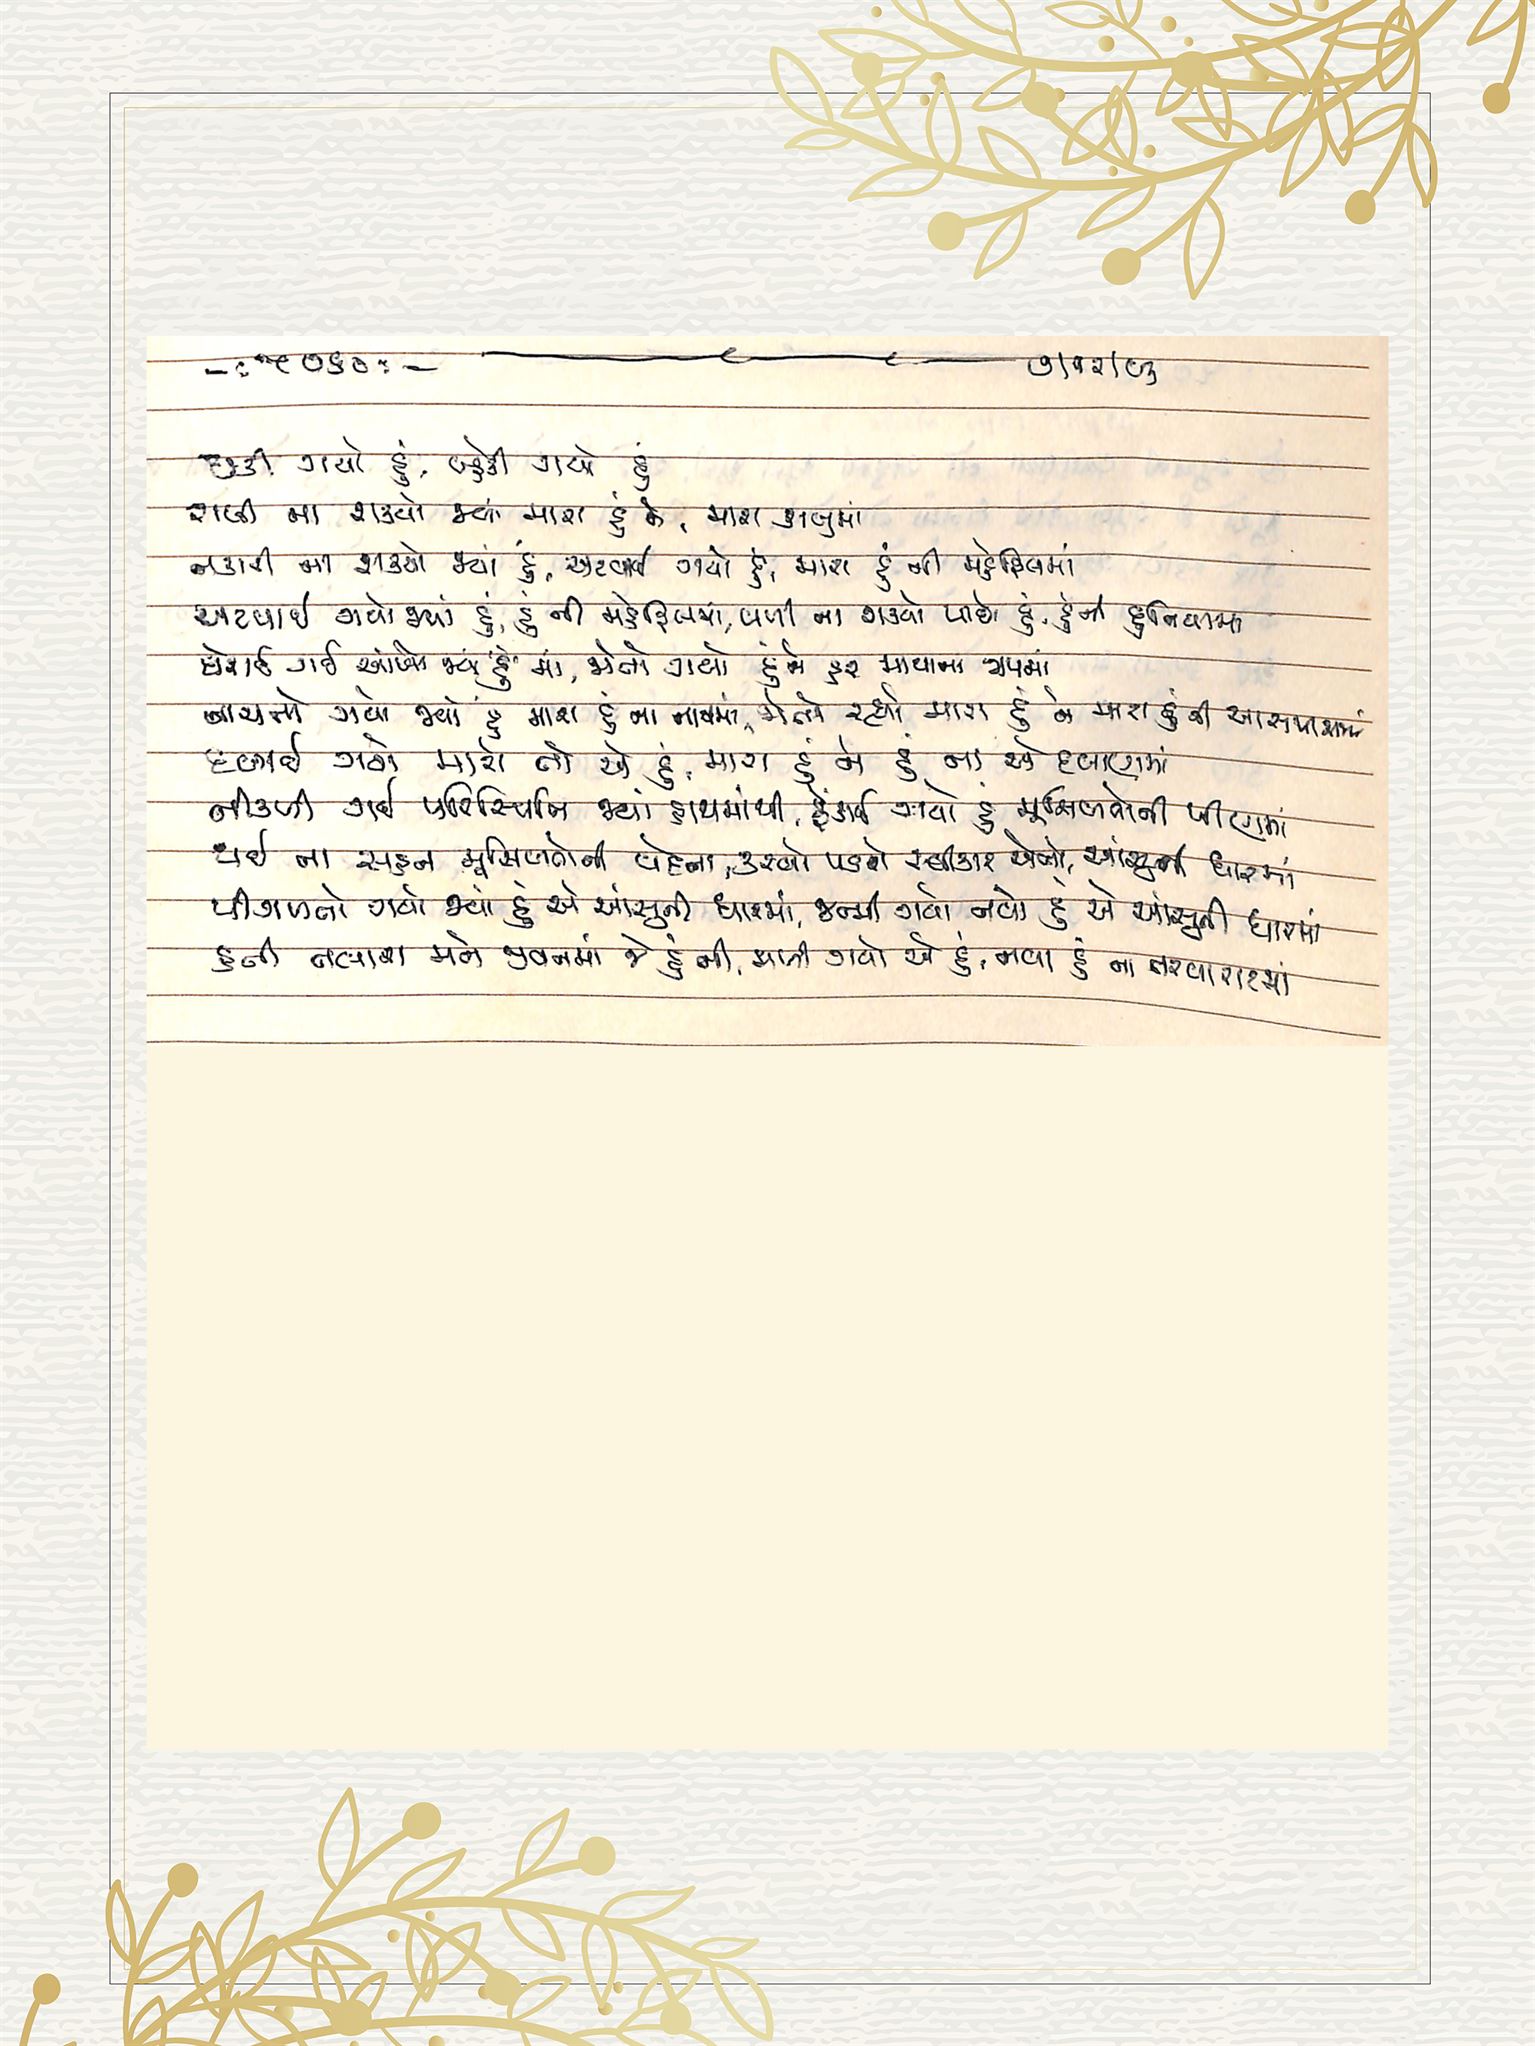 ગયો હું, ગયો હું
રાખી ના શક્યો જ્યાં મારા હું ને, મારા કાબુમાં
નકારી ના શક્યો જ્યાં હું, અટવાઈ ગયો હું, મારા હું ની મહેફિલમાં
અટવાઈ ગયો જ્યાં હું, હું ની મહેફિલમાં, વળી ના શક્યો પાછો હું, હુંની દુનિયામાં
ઘેરાઈ ગઈ આંખો જ્યાં "હું" માં, જોતો ગયો હું ને હર માયાના રૂપમાં
નાચતો ગયો જ્યાં હું મારા હું ના નાચમાં, જોતો રહ્યો મારા હું ને મારા હું ની આસપાસમાં
ગયો મારો તો એ હું, મારા હું ને હું ના એ દબાણમાં
નીકળી ગઈ પરિસ્થિતિ જ્યાં હાથમાંથી, ફેંકાઈ ગયો હું મુસીબતોની ખીણમાં
થઈ ના સહન મુસીબતોની વેદના, કરવો પડયો સ્વીકાર એનો, આંસુની ધારમાં
પીગળતો ગયો જ્યાં હું એ આંસુની ધારમાં, જન્મી ગયો નવો હું એ આંસુની ધારમાં
હતી તલાશ મને જીવનમાં જે હું ની, મળી ગયો એ હું, નવા હું ના